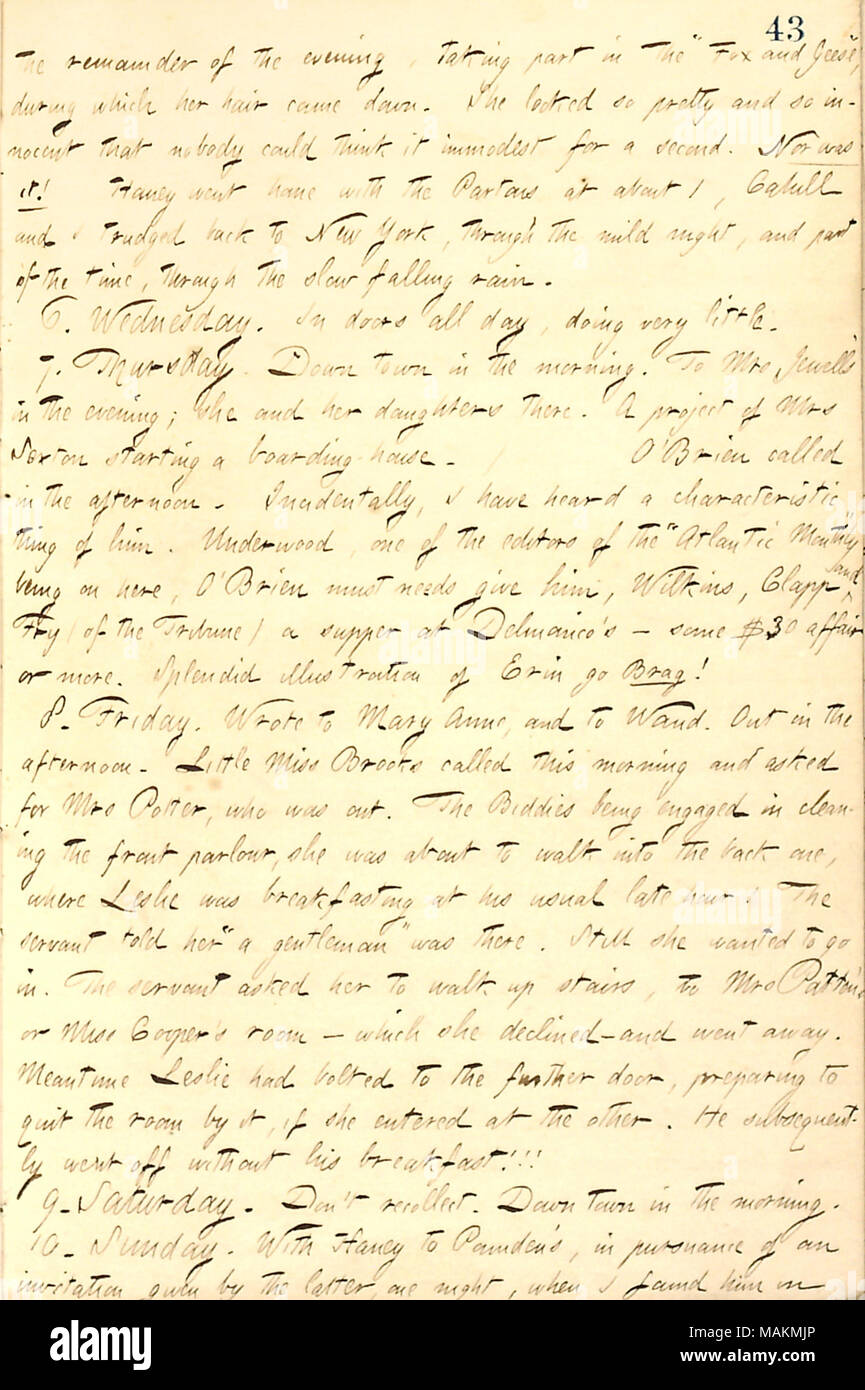 43
the remainder of the evening, taking part in the "Fox and Geese",
during which her hair came down. She looked so pretty and so in-
nocent that nobody could think it immodest for a second. Nor was
it! Haney went home with the Partons at about 1, Cahill
and I trudged back to New York, through the mild night, and part
of the time, through the slow falling rain.
6. Wednesday. In doors all day, doing very little.
7. Thursday. Down town in the morning. To Mrs Jewell's
in the evening; she and her daughters there. A project of Mrs
Sexton starting a boarding-house. O'Brien called
in the afternoon. Incidentally, I have heard a characteristic
thing of him. Underwood, one of the editors of the "Atlantic Monthly"
being on here, O'Brien must needs give him, Wilkins, Clapp, and
Fry (of the Tribune) a supper at Delmonico's — some $30 affair
or more. Splendid illustration of Erin go Brag!
8. Friday. Wrote to Mary Anne, and to Wand. Out in the
afternoon. Little Miss Brooks called this morning and asked
for Mrs Potter, who was out. The Biddies being engaged in clean-
ing the front parlour, she was about to walk into the back one,
where Leslie was breakfasting at his usual late hour. The
servant told her "a gentleman" was there. Still she wanted to go
in. The servant asked her to walk up stairs, to Mrs Patten's
or Miss Cooper's room — which she declined — and went away.
Meantime Leslie had bolted to the further door, preparing to
quit the room by it, if she entered at the other. He subsequent-
ly went off without his breakfast!!!
9. Saturday. Don't recollect. Down town in the morning.
10. Sunday. With Haney to Pounden's, in pursuance of an
invitation given by the latter, one night, when I found him in
alamy
Image ID: MAKMJP
www.alamy.com